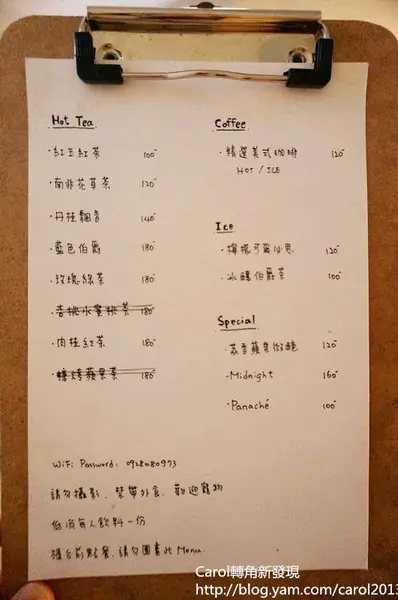 Hot Tea
·紅玉紅茶 100
·南非花草茶 120
·丹桂飄香 140
·藍色伯爵 180
·玫瑰綠茶 180
·杏桃水蜜桃茶 180
·肉桂紅茶 180
·糖烤蘋果茶 180
Coffee
·精選美式咖啡 120
HOT / ICE
Ice
·檸檬可爾必思 120
·冰釀伯爵茶 100
Special
·茶香蘋果微醺 120
·Midnight 160
·Panaché 100
WiFi Password: 0928080973
請勿攝影、禁帶外食、歡迎寵物
低消每人飲料一份
櫃台前點餐、請勿圈畫此 Menu.
Carol轉角新發現
http://blog.yam.com/carol2013